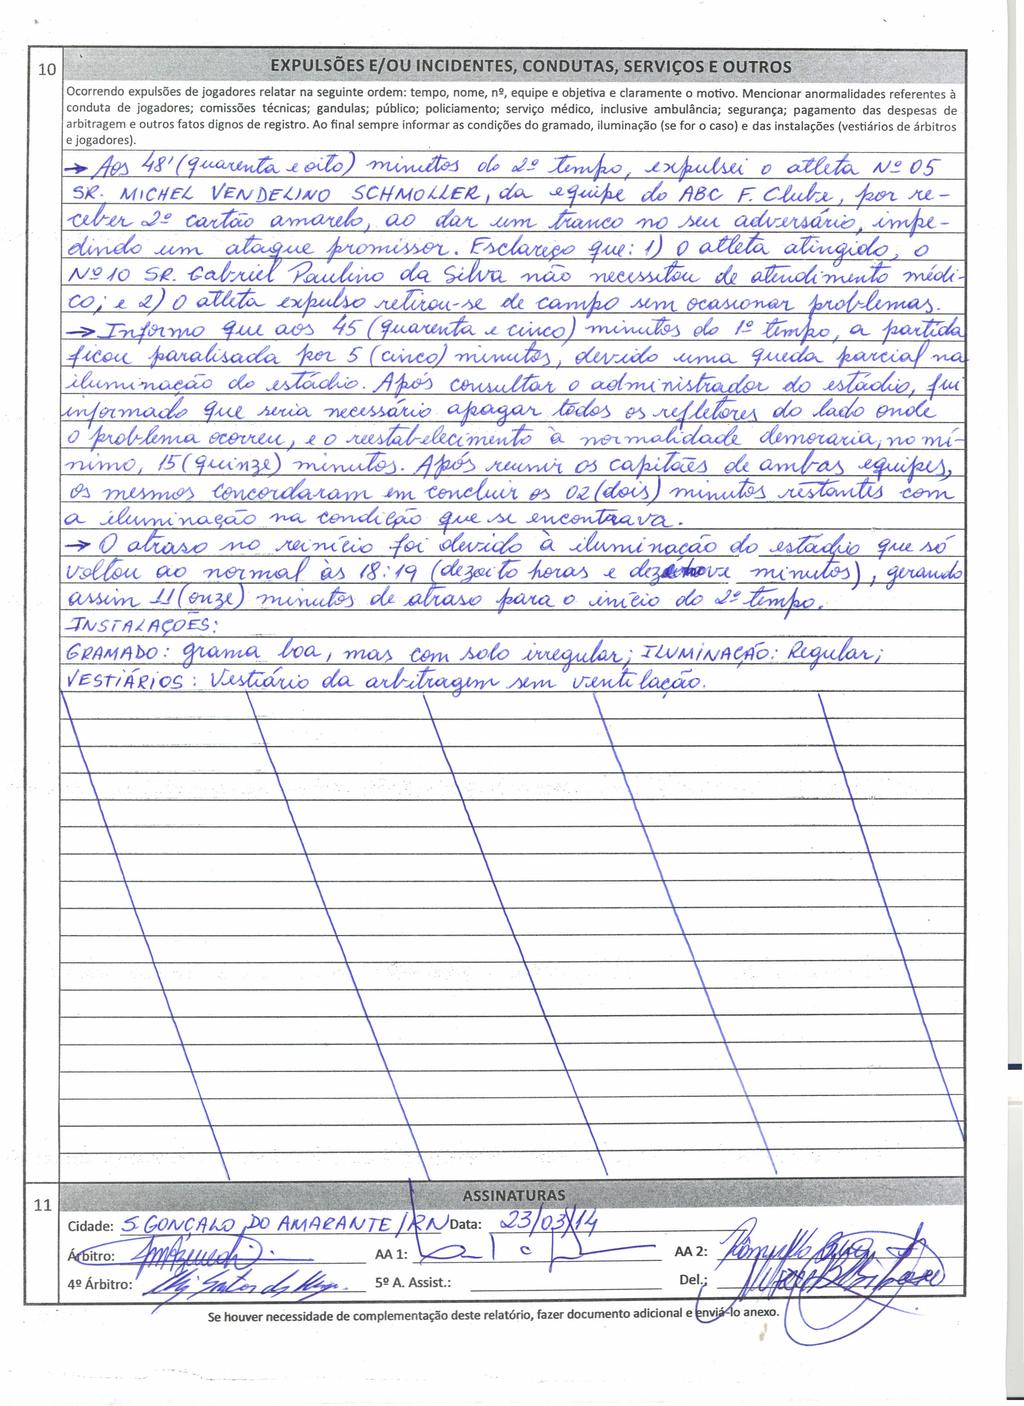 10
EXPULSÕES E/OU INCIDENTES, CONDUTAS, SERVIÇOS E OUTROS
Ocorrendo expulsões de jogadores relatar na seguinte ordem: tempo, nome, nº, equipe e objetiva e claramente o motivo. Mencionar anormalidades referentes à
conduta de jogadores; comissões técnicas; gandulas; público; policiamento; serviço médico, inclusive ambulância; segurança; pagamento das despesas de
arbitragem e outros fatos dignos de registro. Ao final sempre informar as condições do gramado, iluminação (se for o caso) e das instalações (vestiários de árbitros
e jogadores).
→ Aos 48' (quarenta e oito) minutos do 2º tempo, expulsei o atleta Nº 05
SR. MICHEL VENDELINO SCHMOLLER, da equipe do ABC F. Clube, por re-
ceber 2º cartão amarelo, ao dar um tranco no seu adversário, impe-
dindo um ataque promissor. Esclareço que: 1) O atleta atingido, o
Nº 10 SR. Gabriel Paulino da Silva não necessitou de atendimento médi-
co; e 2) O atleta expulso retirou-se de campo sem ocasionar problemas.
→ Informo que aos 45 (quarenta e cinco) minutos do 1º tempo, a partida
ficou paralisada por 5 (cinco) minutos, devido uma queda parcial na
iluminação do estádio. Após consultar o administrador do estádio, fui
informado que seria necessário apagar todos os refletores do lado onde
o problema ocorreu, e o reestabelecimento à normalidade demoraria, no mí-
nimo, 15 (quinze) minutos. Após reunir os capitães de ambas equipes,
os mesmos concordaram em concluir os 02 (dois) minutos restantes com
a iluminação na condição que se encontrava.
→ O atraso no reinício foi devido à iluminação do estádio que só
voltou ao normal às 18:19 (dezoito horas e dezenove minutos), gerando
assim 11 (onze) minutos de atraso para o início do 2º tempo.
INSTALAÇÕES:
GRAMADO: grama boa, mas com solo irregular; ILUMINAÇÃO: Regular;
VESTIÁRIOS: Vestiário da arbitragem sem ventilação.
11
ASSINATURAS
Cidade: S. GONÇALO DO AMARANTE / RN Data: 23/03/14
Árbitro: AA 1: AA 2:
4º Árbitro: 5º A. Assist.: Del.:
Se houver necessidade de complementação deste relatório, fazer documento adicional e enviá-lo anexo.